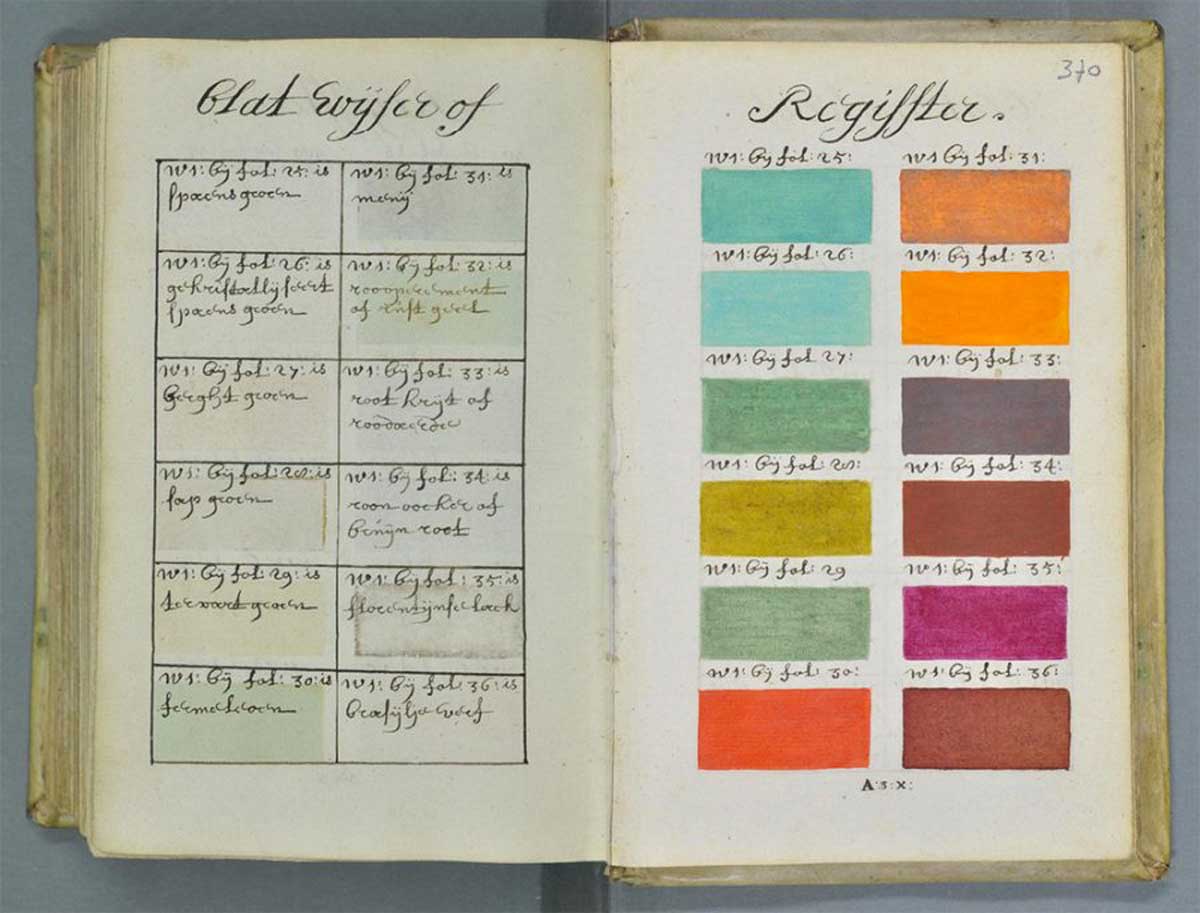 blat wijser of
w1: bij fol: 25: is
spaensgroen
w1: bij fol: 31: is
menij
w1: bij fol: 26: is
gekristallijseert
spaens groen
w1: bij fol: 32: is
roooperement
of rust geel
w1: bij fol: 27: is
berght groen
w1: bij fol: 33: is
root krijt of
roodaerde
w1: bij fol: 28: is
sap groen
w1: bij fol: 34: is
roon oocker of
bruijn root
w1: bij fol: 29: is
terwart groen
w1: bij fol: 35: is
florentijnse lack
w1: bij fol: 30: is
fermeloen
w1: bij fol: 36: is
brasijlje verf
370
Regisster.
w1: bij fol: 25:
w1 bij fol: 31:
w1: bij fol: 26:
w1: bij fol: 32:
w1: bij fol: 27:
w1: bij fol: 33:
w1: bij fol: 28:
w1: bij fol: 34:
w1: bij fol: 29
w1: bij fol: 35:
w1: bij fol: 30:
w1: bij fol: 36:
A:5:X: